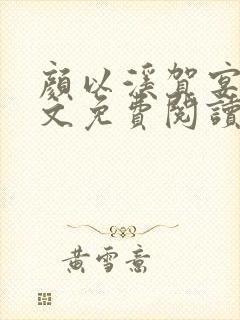 顏以溪賀宴
文免費閱讀
黃雪意